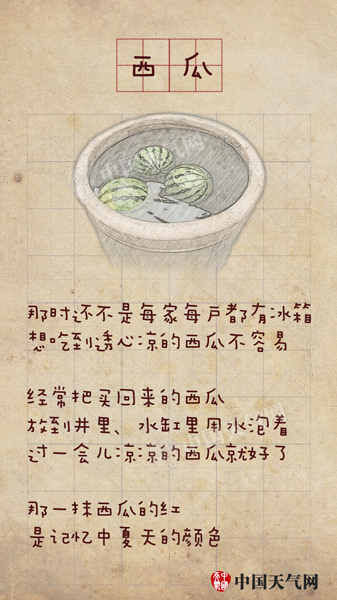 西瓜
那时还不是每家每户都有冰箱
想吃到透心凉的西瓜不容易
经常把买回来的西瓜
放到井里、水缸里用水泡着
过一会儿凉凉的西瓜就好了
那一抹西瓜的红
是记忆中夏天的颜色
中国天气网